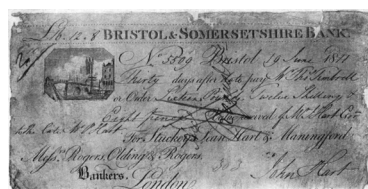 £16.12.8 BRISTOL & SOMERSETSHIRE BANK.
No. 3509 Bristol 19 June 1811
Thirty days after date pay Wm. Thos.
or Order Sixteen Pounds Twelve Shillings &
Eight pence Value received of Mr. Hart
to the Late Wm. P. Hart
For Stuckey, Lean, Hart & Maningford,
Messrs. Rogers, Olding & Rogers,
Bankers, John Hart
London